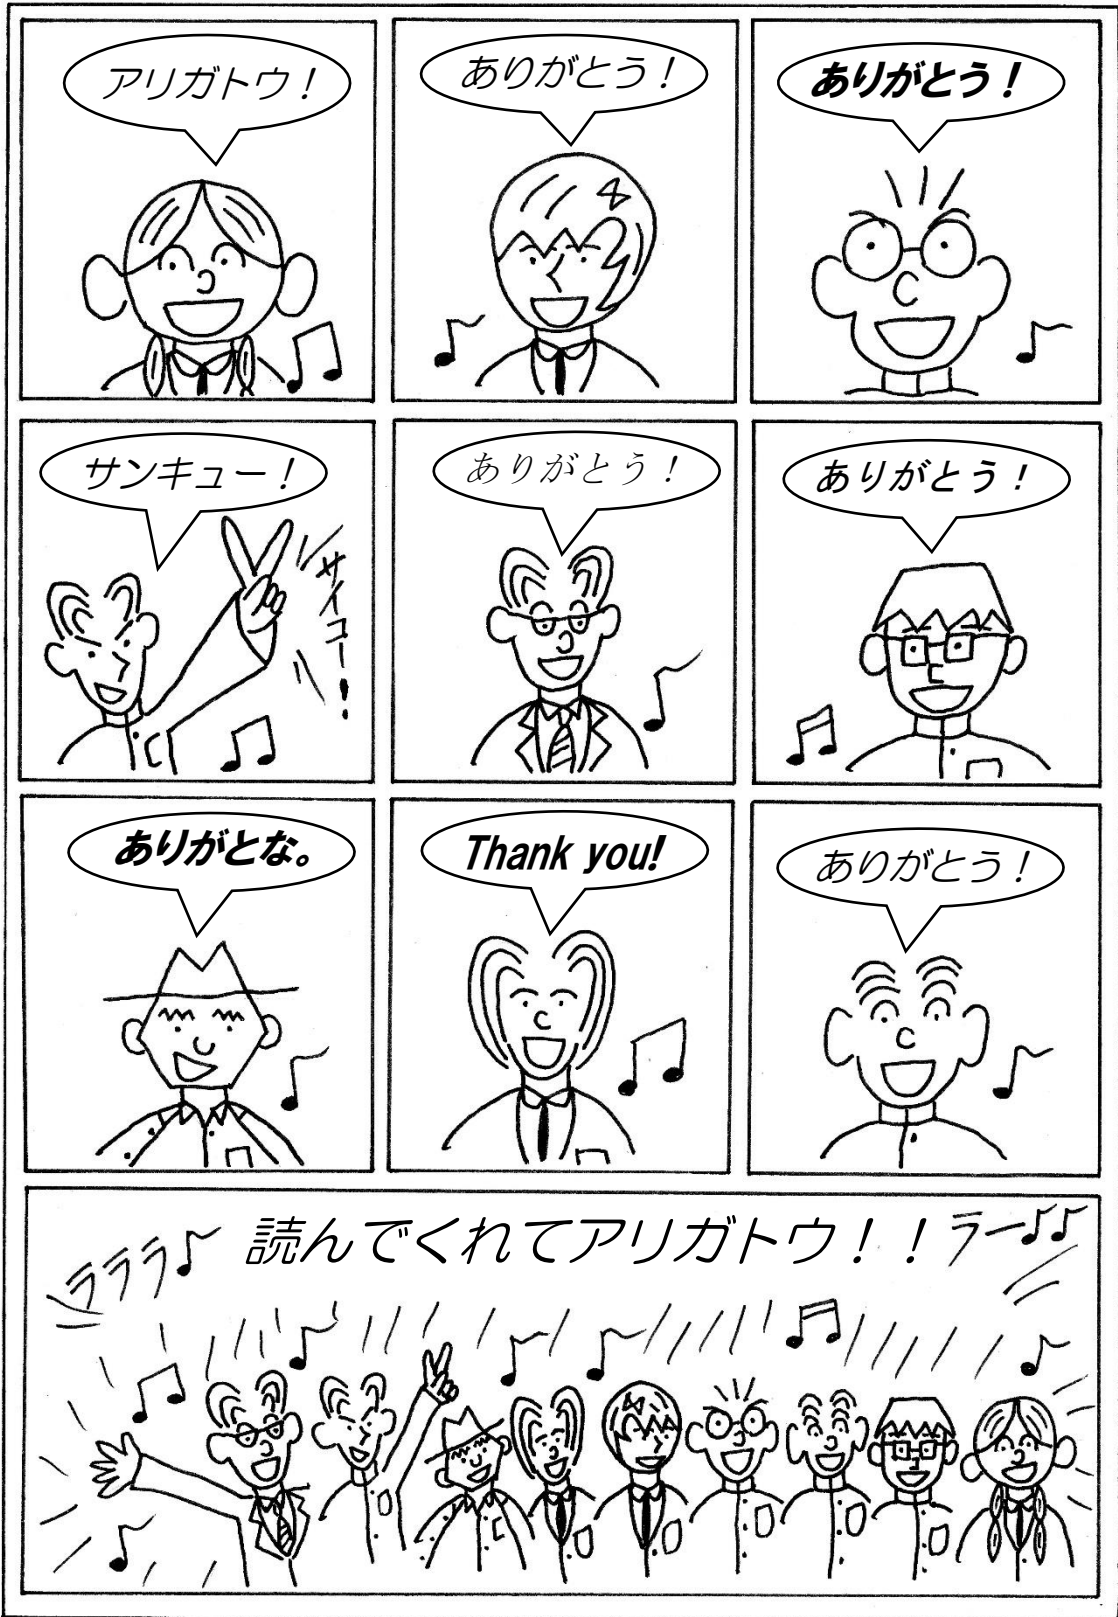 アリガトウ！
ありがとう！
ありがとう！
サンキュー！
サイコー！
ありがとう！
ありがとう！
ありがとな。
Thank you!
ありがとう！
ラララ♪
読んでくれてアリガトウ！！
ラー♪♪